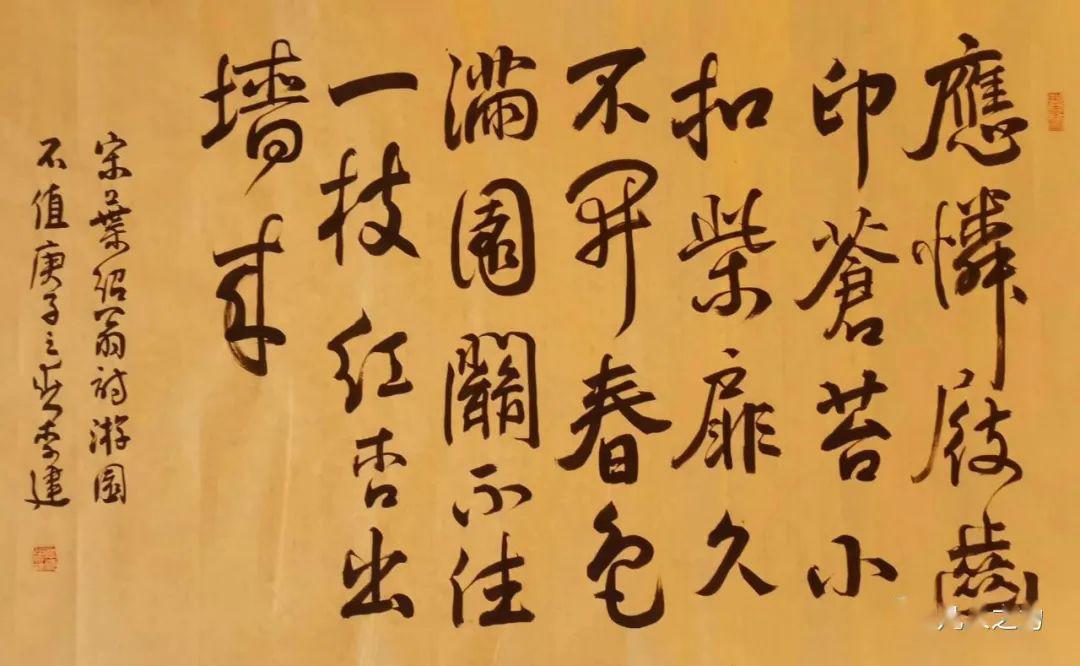 應憐屐齒
印蒼苔小
扣柴扉久
不開春色
滿園關不住
一枝紅杏出
墻來
宋葉紹翁詩游園
不值庚子之李建